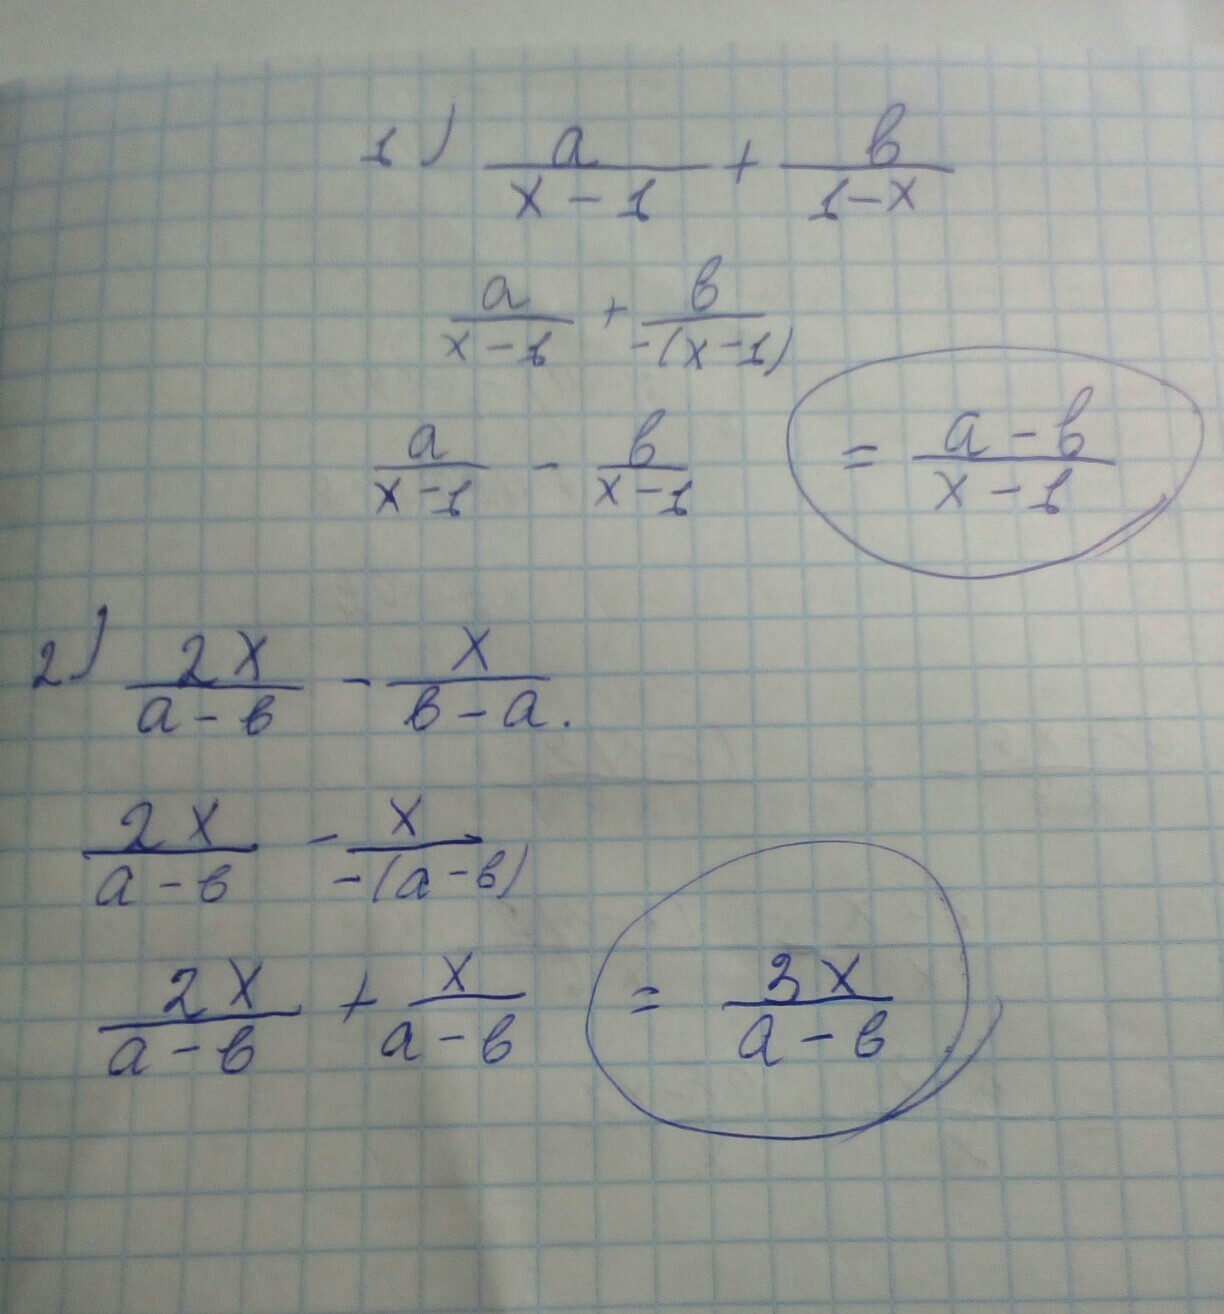 1) a/(x-1) + b/(1-x)
a/(x-1) + b/(-(x-1))
a/(x-1) - b/(x-1) = (a-b)/(x-1)
2) 2x/(a-b) - x/(b-a).
2x/(a-b) - x/(-(a-b))
2x/(a-b) + x/(a-b) = 3x/(a-b)